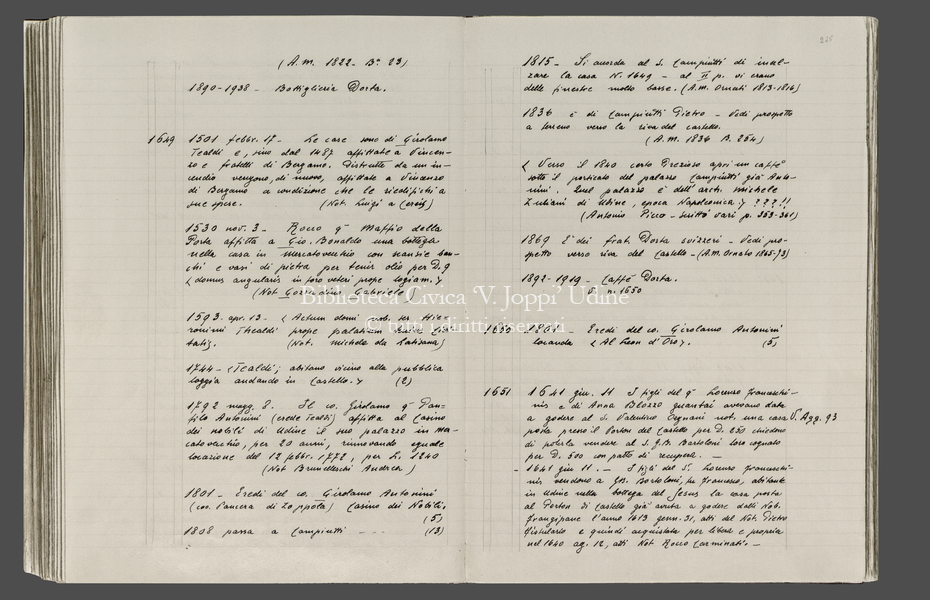 (A.m. 1822 - Bª 23)
1890-1938 - Bottiglieria Dorta.
1649 1501 febbr. 17. - Le case sono di Girolamo
Tealdi e, sino dal 1487 affittate a Vincen-
zo e fratelli di Bergamo. Distrutte da un in-
cendio vengono, di nuovo, affittate a Vincenzo
di Bergamo a condizione che le riedifichi a
sue spese. (Not. Luigi a
1530 nov. 3 - Rocco qm Maffio della
Porta affitta a Gio. Bonaldo una bottega
nella casa in mercatovecchio con scansie ban-
chi e vasi di pietra per tenir olio per D. 9
<domus angularis in foro veteri prope logiam.>
(Not Gabriele
1593 - apr. 13 - <Actum domi nob. ser Hie-
ronimi Thealdi prope palatium
tatis. (Not. Michele da Latisana)
1744 - <Tealdi; abitano vicino alla pubblica
loggia andando in Castello.> (2)
1792 magg. 8. Il co. Girolamo qm Pan-
filo Antonini (erede Tealdi) affitta al Casino
dei nobili di Udine il suo palazzo in mer-
catovecchio, per 20 anni, rinnovando eguale
locazione del 12 febbr. 1772, per L. 1240
(Not Brunelleschi Andrea)
1801 - Eredi del co. Girolamo Antonini
(cos. Panciera di Zoppola) Casino dei Nobili.
(5)
1808 passa a Campiutti - - - (13)
225
1815 - Si accorda al S. Campiutti di inal-
zare la casa N. 1649 - al II p. vi erano
delle finestre molto basse. (A.m. Ornati 1813-1816)
1836 è di Campiutti Pietro - Vedi prospetto
a terreno verso la riva del castello.
(A.m. 1836 B. 254)
<Verso il 1840 certo Prezioso aprì un caffè
sotto il porticato del palazzo Campiutti già Anto-
nini. Sul palazzo è dell'arch. Michele
Zuliani di Udine, epoca Napoleonica.> ???!!
(Antonio Picco - scritti vari p. 353-361)
1869 È dei frat. Dorta svizzeri - Vedi pro-
spetto verso riva del Castello - (A.m. Ornato 1865-73)
1892-1919 - Caffè Dorta.
v. n. 1650
1650 1801 - Eredi del co. Girolamo Antonini
locanda <Al Leon d'Oro>. (5)
1651 1641 giu. 11 I figli del qm Lorenzo Franceschi-
nis e di Anna Blozzo avevano data
a godere al S. Valentino not. una casa V. Agg. 93
posta presso il Porton del Castello per D. 250 chiedono
di poterla vendere al S. G.B. Bortoloni loro cognato
per D. 500 con patto di recupera. -
- 1641 giu 11. - I figli del S. Lorenzo Franceschi-
nis vendono a GB. Bortoloni, fu Francesco, abitante
in Udine nella bottega del Jesus la casa posta
al Porton di Castello già avuta a godere dalli Nob.
Frangipane l'anno 1613 genn. 31, atti del Not. Pietro
e quindi acquistata per libera e propria
nel 1640 ag. 12, atti Not Rocco Carminati. -
Biblioteca Civica 'V. Joppi' Udine
© tutti i diritti riservati